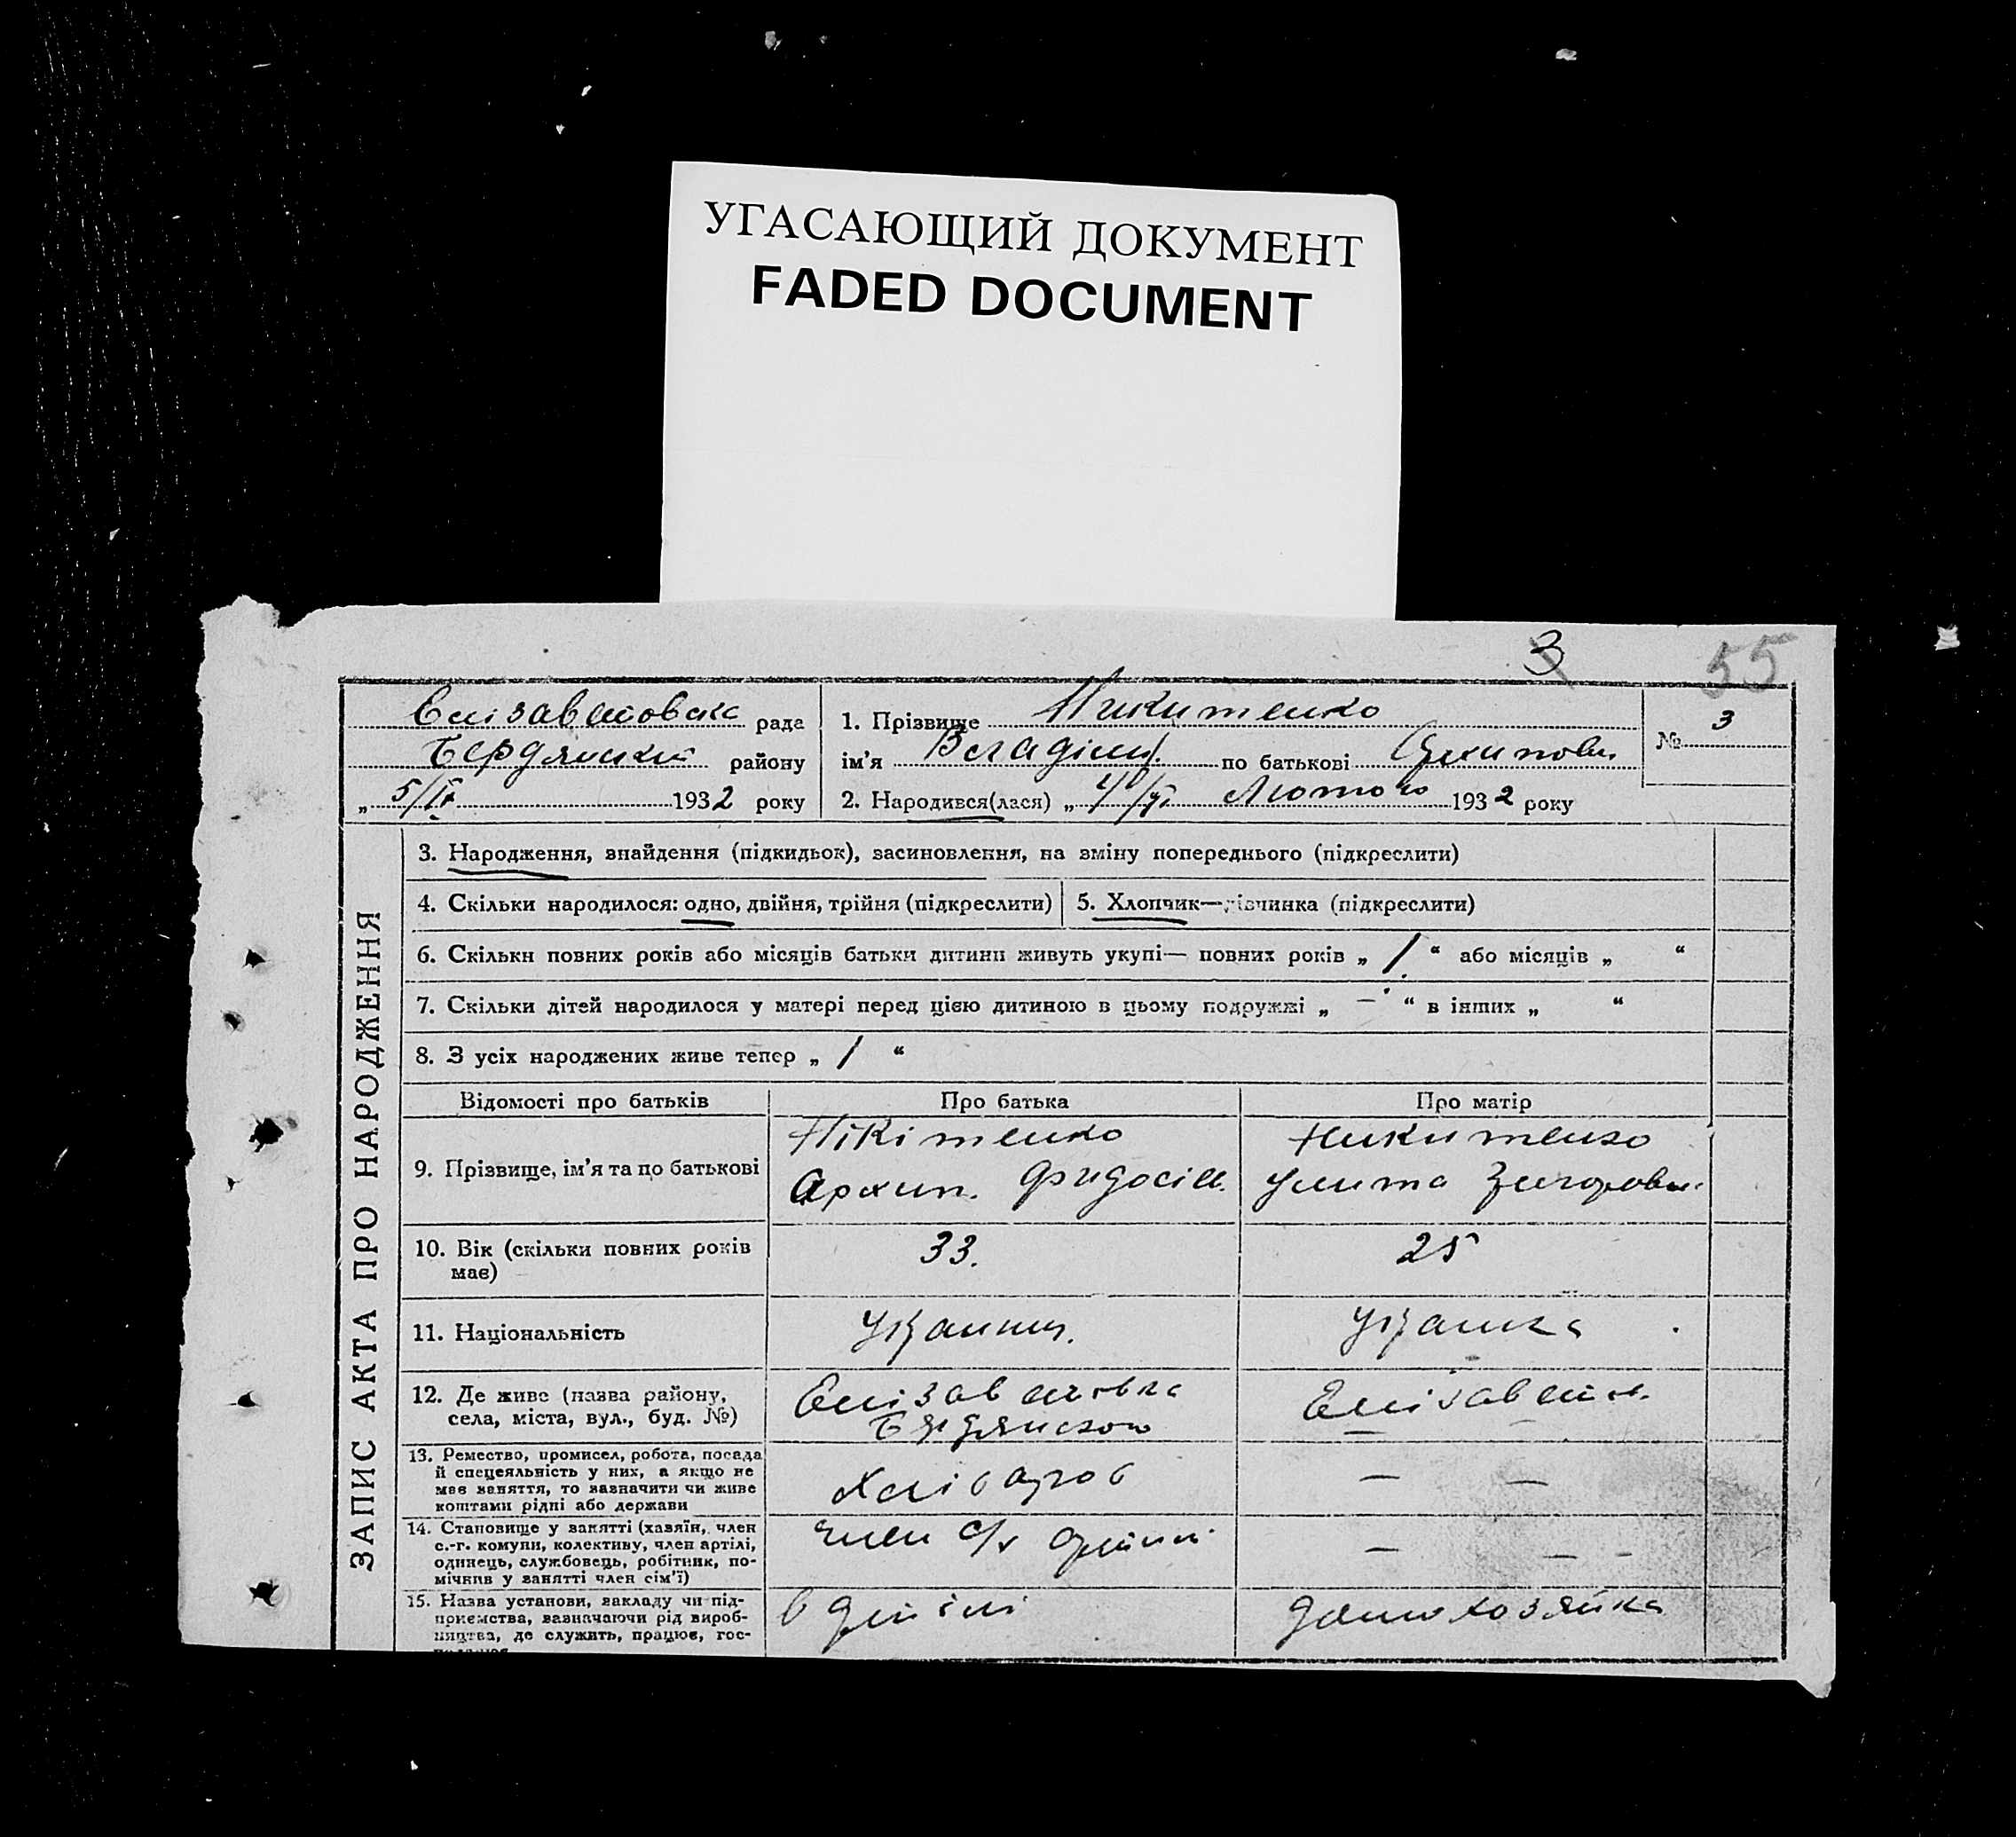 УГАСАЮЩИЙ ДОКУМЕНТ
FADED DOCUMENT
3
55
Єлізаветовска рада
Бердянський району
„ 5/IV 1932 року
1. Прізвище Никитенко
ім'я Владімір. по батькові Архипович
2. Народився(лася) „ Лютого 1932 року
№ 3
ЗАПИС АКТА ПРО НАРОДЖЕННЯ
3. Народження, знайдення (підкидьок), засиновлення, на зміну попереднього (підкреслити)
4. Скільки народилося: одно, двійня, трійня (підкреслити)
5. Хлопчик—дівчинка (підкреслити)
6. Скільки повних років або місяців батьки дитини живуть укупі— повних років „ 1 “ або місяців „ “
7. Скільки дітей народилося у матері перед цією дитиною в цьому подружжі „ — “ в інших „ “
8. З усіх народжених живе тепер „ 1 “
Відомості про батьків
Про батька
Про матір
9. Прізвище, ім'я та по батькові
Нікітенко
Архип.
Никитенко
10. Вік (скільки повних років
має)
33.
25
11. Національність
12. Де живе (назва району,
села, міста, вул., буд. №)
Єлізаветовка
Бердянского
Єлізавет
13. Ремество, промисел, робота, посада
й спецеяльність у них, а якщо не
має заняття, то зазначити чи живе
коштами рідні або держави
Хлібороб
— —
14. Становище у занятті (хазяїн, член
с.-г. комуни, колективу, член артілі,
одинець, службовець, робітник, по-
мічнив у занятті член сім'ї)
член с/г артілі
— — -
15. Назва установи, закладу чи під-
приємства, зазначаючи рід вироб-
ництва, де служить, працює, гос-
в артілі
домохозяйка